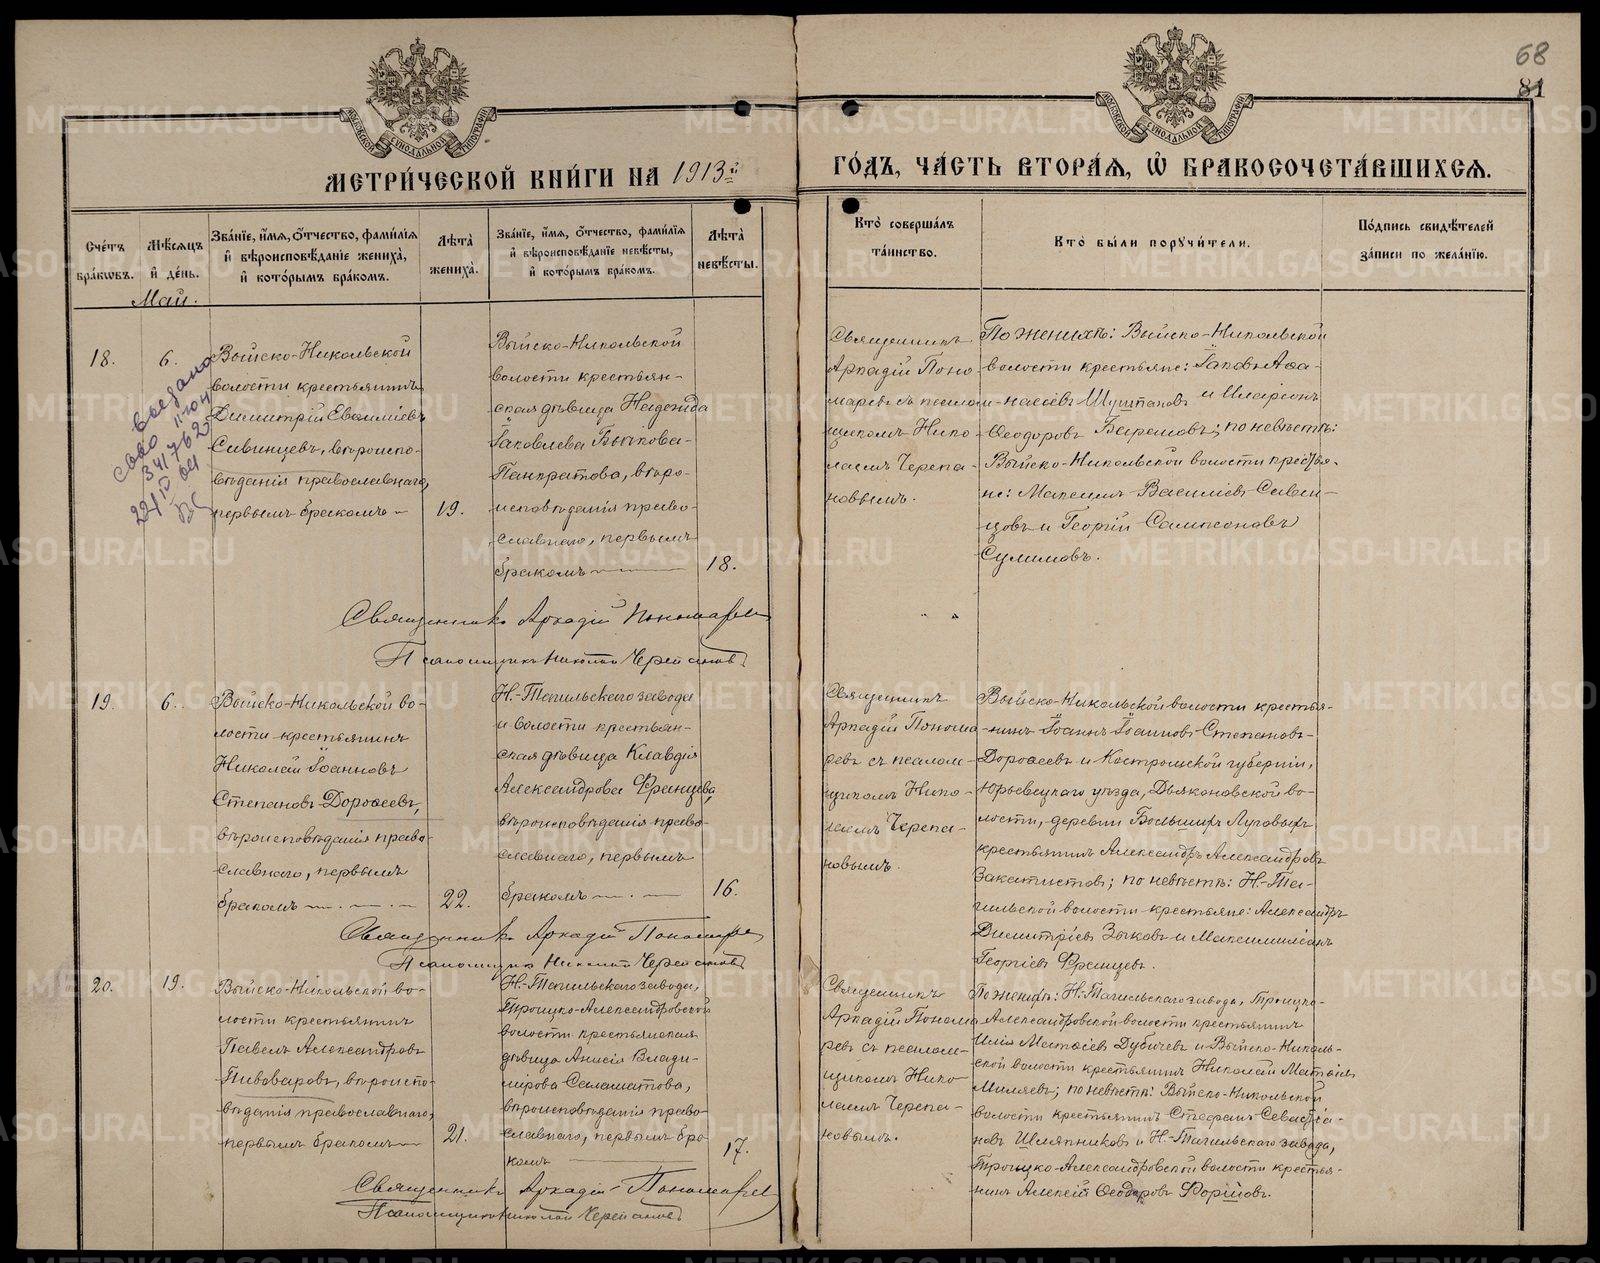 68
81
МОСКОВСКОЙ СѴНОДАЛЬНОЙ ТИПОГРАФІИ
МОСКОВСКОЙ СѴНОДАЛЬНОЙ ТИПОГРАФІИ
МЕТРИ́ЧЕСКОЙ КНИ́ГИ НА 1913й ГО́ДЪ, ЧА́СТЬ ВТОРА́Я, Ѡ҆ БРАКОСОЧЕТА́ВШИХСЯ.
Сче́тъ бра́ковъ.
Мѣ́сяцъ и҆ де́нь.
Зва́ніе, и҆́мя, о҆́тчество, фами́лія и҆ вѣроисповѣ́даніе жениха̀, и҆ кото́рымъ бра́комъ.
Лѣ́та̀ жениха̀.
Зва́ніе, и҆́мя, о҆́тчество, фами́лія и҆ вѣроисповѣ́даніе невѣ́сты, и҆ кото́рымъ бра́комъ.
Лѣ́та̀ невѣ́сты.
Кто̀ соверша́лъ та́инство.
Кто̀ бы́ли поручи́тели.
По́дпись свидѣ́телей за́писи по жела́нію.
Май.
18.
6.
Выйско-Никольской
волости крестьянинъ
Димитрій Евѳиміевъ
Сивинцевъ, вѣроиспо-
вѣданія православнаго,
первымъ бракомъ
19.
Выйско-Никольской
волости крестьян-
ская дѣвица Надежда
Іаковлева Быкова-
Панкратова, вѣро-
исповѣданія право-
славнаго, первымъ
бракомъ
18.
Священникъ
Аркадій Поно-
маревъ съ псалом-
щикомъ Нико-
лаемъ Черепа-
новымъ.
По женихѣ: Выйско-Никольской
волости крестьяне: Іаковъ Аѳа-
насіевъ Шустовъ и Иларіонъ
Ѳеодоровъ; по невѣстѣ:
Выйско-Никольской волости крестья-
не: Максимъ Василіевъ Сивин-
цовъ и Георгій Сампсоновъ
Сулимовъ.
Священникъ Аркадій Пономаревъ
Псаломщикъ Николай Черепановъ
19.
6.
Выйско-Никольской во-
лости крестьянинъ
Николай Іоанновъ
Степановъ-Дороѳеевъ,
вѣроисповѣданія право-
славнаго, первымъ
бракомъ
22.
Н.-Тагильскаго завода
и волости крестьян-
ская дѣвица Клавдія
Александрова Френцева,
вѣроисповѣданія право-
славнаго, первымъ
бракомъ
16.
Священникъ
Аркадій Понома-
ревъ съ псалом-
щикомъ Нико-
лаемъ Черепа-
новымъ.
Выйско-Никольской волости крестья-
нинъ Іоаннъ Іоанновъ Степановъ-
Дороѳеевъ и Костромской губерніи,
Юрьевецкаго уѣзда, Дьяконовской во-
лости, деревни Большихъ Луговыхъ
крестьянинъ Александръ Александровъ
Закатистовъ; по невѣстѣ: Н.-Та-
гильской волости крестьяне: Александръ
Димитріевъ Зыковъ и Максимиліанъ
Георгіевъ Френцевъ.
Священникъ Аркадій Пономаревъ
Псаломщикъ Николай Черепановъ
20.
19.
Выйско-Никольской во-
лости крестьянинъ
Павелъ Александровъ
Пивоваровъ, вѣроиспо-
вѣданія православнаго,
первымъ бракомъ
21.
Н.-Тагильскаго завода,
Троицко-Александровской
волости крестьянская
дѣвица Анисія Влади-
мірова Саламатова,
вѣроисповѣданія право-
славнаго, первымъ бра-
комъ
17.
Священникъ
Аркадій Понома-
ревъ съ псалом-
щикомъ Нико-
лаемъ Черепа-
новымъ.
По женихѣ: Н.-Тагильскаго завода, Троицко-
Александровской волости крестьянинъ
Илія Матѳіевъ Дубичевъ и Выйско-Николь-
ской волости крестьянинъ Николай Матѳіевъ
Миляевъ; по невѣстѣ: Выйско-Никольской
волости крестьянинъ Стефанъ Севастіа-
новъ Шляпниковъ и Н.-Тагильскаго завода,
Троицко-Александровской волости крестья-
нинъ Алексѣй Ѳеодоровъ.
Священникъ Аркадій Пономаревъ
Псаломщикъ Николай Черепановъ
METRIKI.GASO-URAL.RU